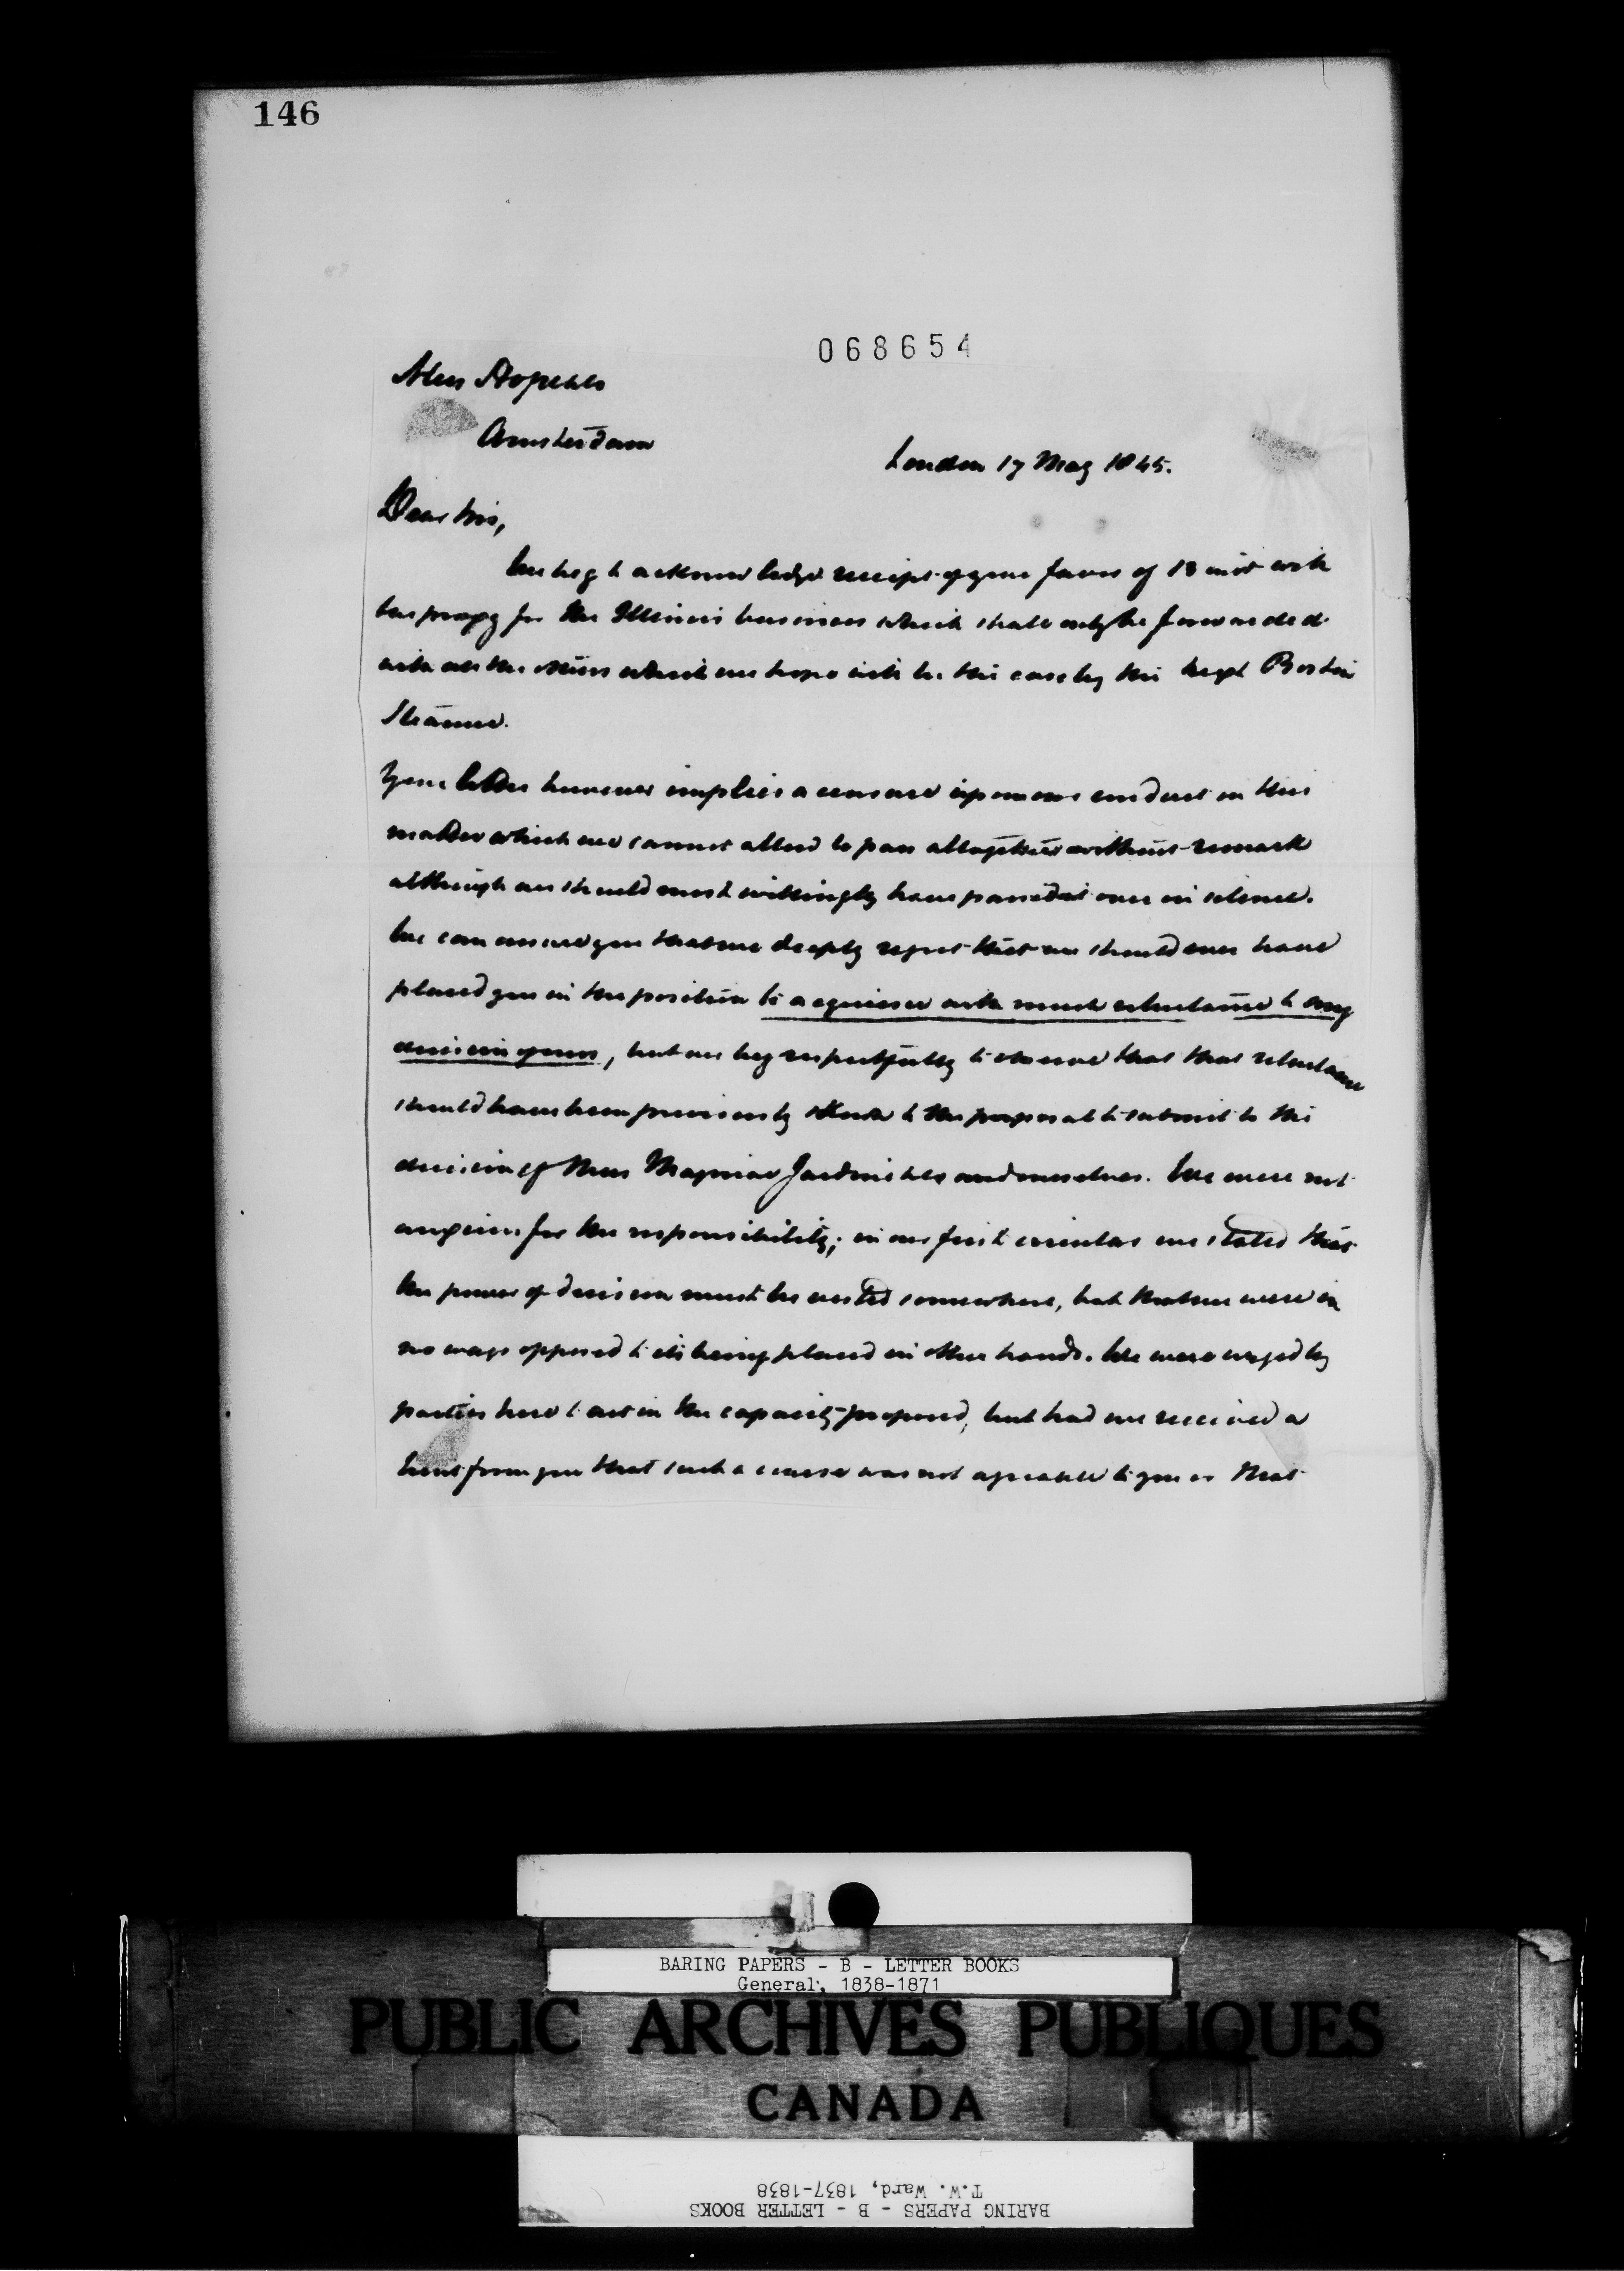 146
068654
Mess Hope & Co
Amsterdam
London 17 May 1845.
Dear Sirs,
We beg to acknowledge receipt of your favor of 13 inst with
the proxy for the Illinois business which shall only be forwarded
with all the others which we hope will be the case by the next Boston
Steamer.
Your letter however implies a censure upon our conduct in this
matter which we cannot allow to pass altogether without remark
although we should most willingly have passed it over in silence.
We can assure you that we deeply regret that we should ever have
placed you in the position to acquiesce with much reluctance to any
decision of ours, but we beg respectfully to observe that that reluctance
should have been previously shown to the proposal to submit to the
decision of Mess Magniac Jardine & Co and ourselves. We were not
anxious for the responsibility; in our first circular we stated that
the power of decision must be vested somewhere, but that we were in
no ways opposed to its being placed in other hands. We were urged by
parties here to act in the capacity proposed, but had we received a
hint from you that such a course was not agreeable to you or that
BARING PAPERS - B - LETTER BOOKS
General, 1838-1871
PUBLIC ARCHIVES PUBLIQUES
CANADA
T.W. Ward, 1837-1838
BARING PAPERS - B - LETTER BOOKS